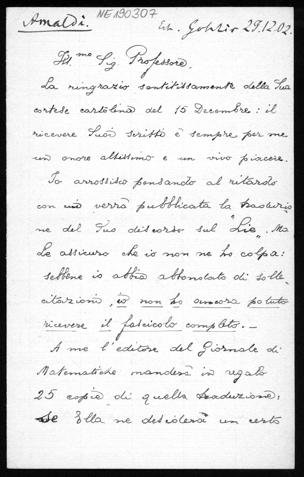 Amaldi.
NE190307
Gobbio 29.12.02.
Ill.mo Sig Professore,
La ringrazio sentitissamente della Sua
cortese cartolina del 15 Decembre: il
ricevere Suoi scritti è sempre per me
un onore altissimo e un vivo piacere.
Io arrossisco pensando al ritardo
con cui verrà pubblicata la traduzio
ne del Suo discorso sul "Lie". Ma
Le assicuro che io non ne ho colpa:
sebbene io abbia abbondato di solle-
citazioni, io non ho ancora potuto
ricevere il fascicolo completo. _
A me l'editore del Giornale di
Matematiche manderà in regalo
25 copie di quella traduzione;
se Ella ne desidererà un certo